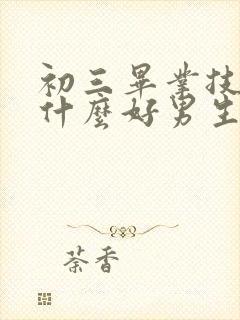 初三畢業技
什麼好男生
荼香